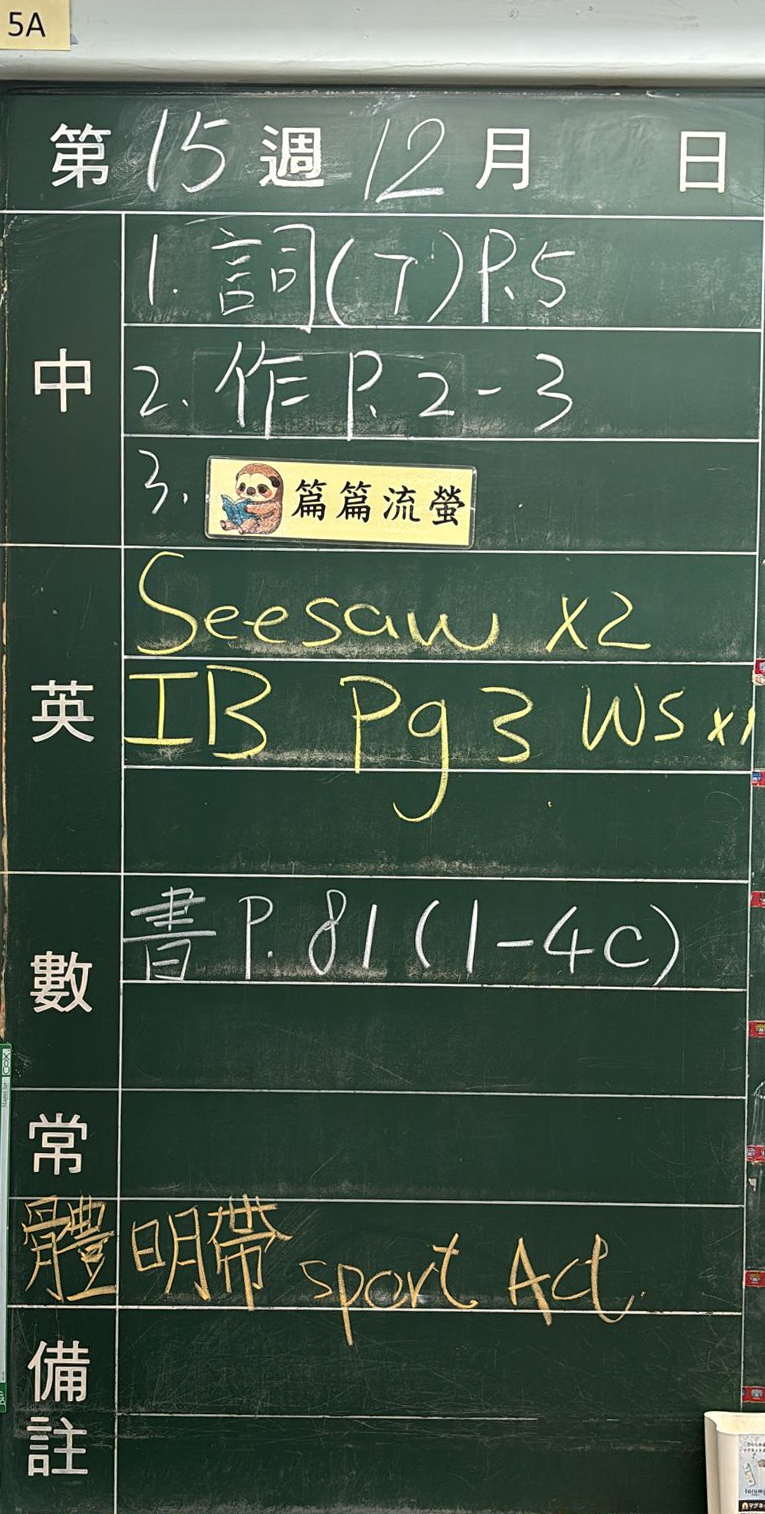 5A
第 15 週 12 月 日
中
1. 詞(T) P.5
2. 作 P. 2-3
3. 篇篇流螢
英
Seesaw x2
IB Pg 3 WS x1
數
書 P. 81 (1-4c)
常
體 明帶 sport Act.
備註